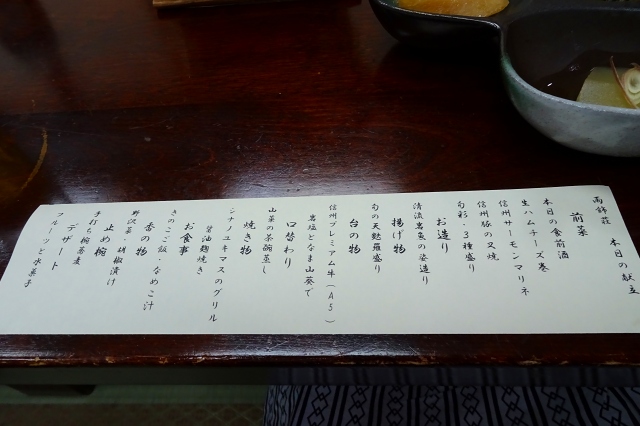 本日の献立
前菜
本日の食前酒
生ハムチーズ巻
信州サーモンマリネ
信州豚の叉焼
旬彩・3種盛り
お造り
清流岩魚の姿造り
揚げ物
旬の天麩羅盛り
台の物
信州プレミアム牛（A5）
岩塩となま山葵で
口替わり
山菜の茶碗蒸し
焼き物
シナノユキマスのグリル
醤油麹焼き
お食事
きのこご飯・なめこ汁
香の物
野沢菜・胡椒漬け
止め椀
手打ち椀蕎麦
デザート
フルーツと水菓子